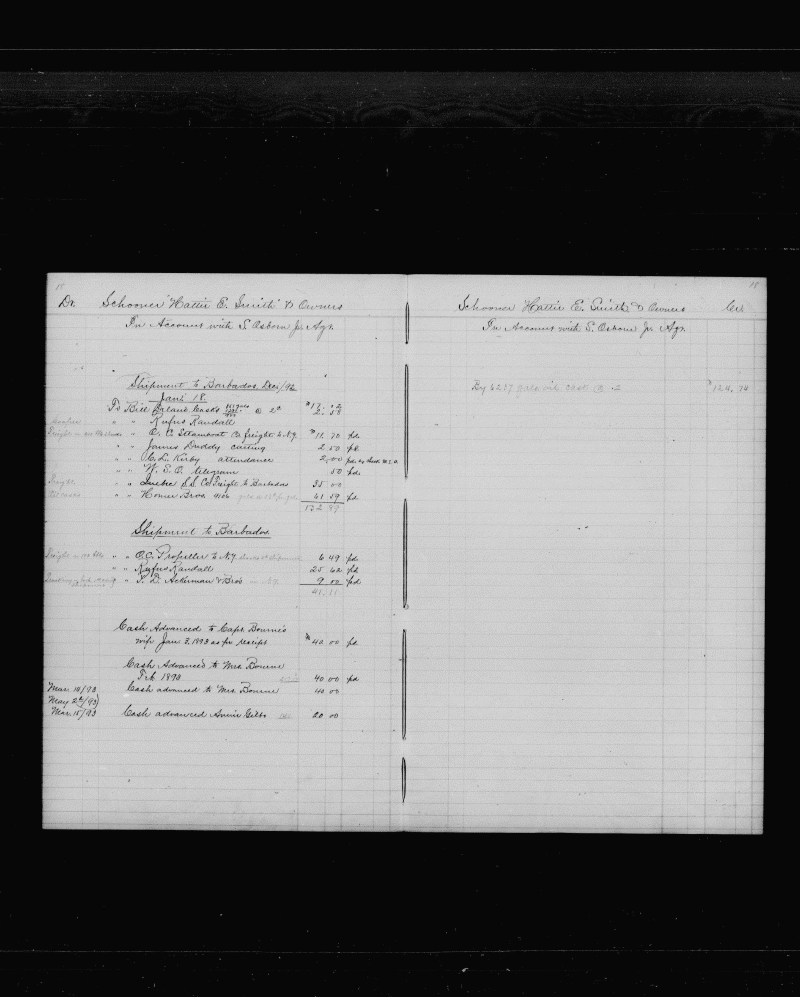 15
Dr. Schooner Hattie E. Smith & Owners
In Account with S. Osborn Jr. Agt.
Shipment to Barbados, Dec/92
Jan. 18.
To Bill Casks @ 2¢
" " Rufus Randall
Freight " " O. C. Steamboat Co. freight to N.Y. $11 70 pd.
" " James Duddy carting 2 50 pd.
" " C. L. Kirby attendance 2.00 pd. by check
" " W. S. O. telegram 50 pd.
Freight " " Quebec S.S. Co. Freight to Barbados 35 00
" " Homer Bros. 61 59 pd
132 89
Shipment to Barbados.
Freight " " O.C. Propeller to N.Y. 6 49 pd
" " Rufus Randall 25 62 pd
" " T. D. Ackerman & Bro's 9 00 pd
41.11
Cash Advanced to Capt. Bourne's
wife Jan 3, 1893 as per receipt $40 00 pd
Cash Advanced to Mrs. Bourne
Feb 1893 40 00 pd
Mar. 14/93 Cash advanced to Mrs. Bourne 40 00
May 2d/93
Mar. 15/93 Cash advanced Annie 20 00
15
Schooner Hattie E. Smith & Owners Cr.
In Account with S. Osborn Jr. Agt.
By 6237 gals oil cask @ .2 $124.74